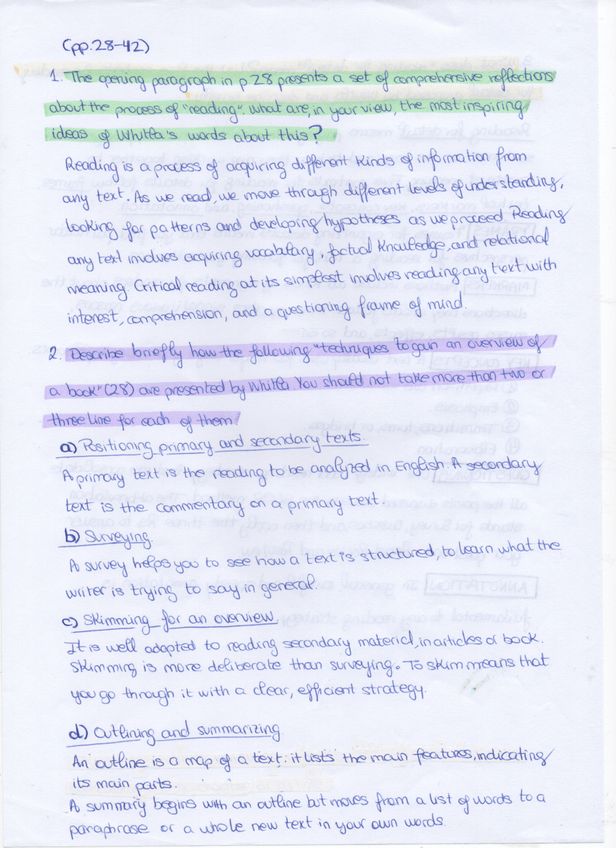 (pp.28-42)
1. The opening paragraph in p 28 presents a set of comprehensive reflections
about the process of "reading". what are, in your view, the most inspiring
ideas of Whitla's words about this?
Reading is a process of acquiring different kinds of information from
any text. As we read, we move through different levels of understanding,
looking for patterns and developing hypotheses as we proceed Reading
any text involves acquiring vocabulary, factual Knowledge, and relational
meaning. Critical reading at its simplest involves reading any text with
interest, comprehension, and a questioning frame of mind.
2. Describe briefly how the following "techniques to gain an overview of
a book" (28) are presented by Whitla You should not take more than two or
three line for each of them!
a) Positioning primary and secondary texts.
A primary text is the reading to be analyzed in English. A secondary
text is the commentary on a primary text.
b) Surveying
A survey helps you to see how a text is structured, to learn what the
writer is trying to say in general.
c) Skimming for an overview.
It is well adapted to reading secondary material, in articles or book.
Skimming is more deliberate than surveying. To skim means that
you go through it with a clear, efficient strategy.
d) Outlining and summarizing
An outline is a map of a text: it lists the main features, indicating
its main parts.
A summary begins with an outline but moves from a list of words to a
paraphrase or a whole new text in your own words.